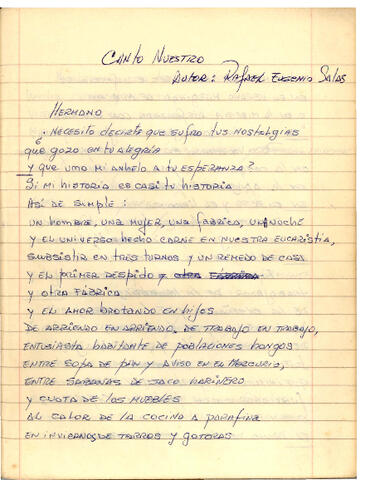 CANTO NUESTRO
AUTOR: RAFAEL EUGENIO SALAS
HERMANO
¿NECESITO DECIRTE QUE SUFRO TUS NOSTALGIAS
QUE GOZO EN TU ALEGRIA
Y QUE UMO MI ANHELO A TU ESPERANZA?
SI MI HISTORIA ES CASI TU HISTORIA
ASÍ DE SIMPLE:
UN HOMBRE, UNA MUJER, UNA FABRICA, UNA NOCHE
Y EL UNIVERSO HECHO CARNE EN NUESTRA EUCARISTIA,
SUBSISTIR EN TRES TURNOS Y UN REMEDO DE CASA
Y EL PRIMER DESPIDO Y OTRA FÁBRICA
Y OTRA FÁBRICA
Y EL AMOR BROTANDO EN HIJOS
DE ARRIENDO EN ARRIENDO, DE TRABAJO EN TRABAJO,
ENTUSIASTA HABITANTE DE POBLACIONES HONGOS
ENTRE SOPA DE PAN Y AVISO EN EL MERCURIO,
ENTRE SABANAS DE SACO HARINERO
Y CUOTA DE LOS MUEBLES
AL CALOR DE LA COCINA A PARAFINA
EN INVIERNOS DE TARROS Y GOTERAS